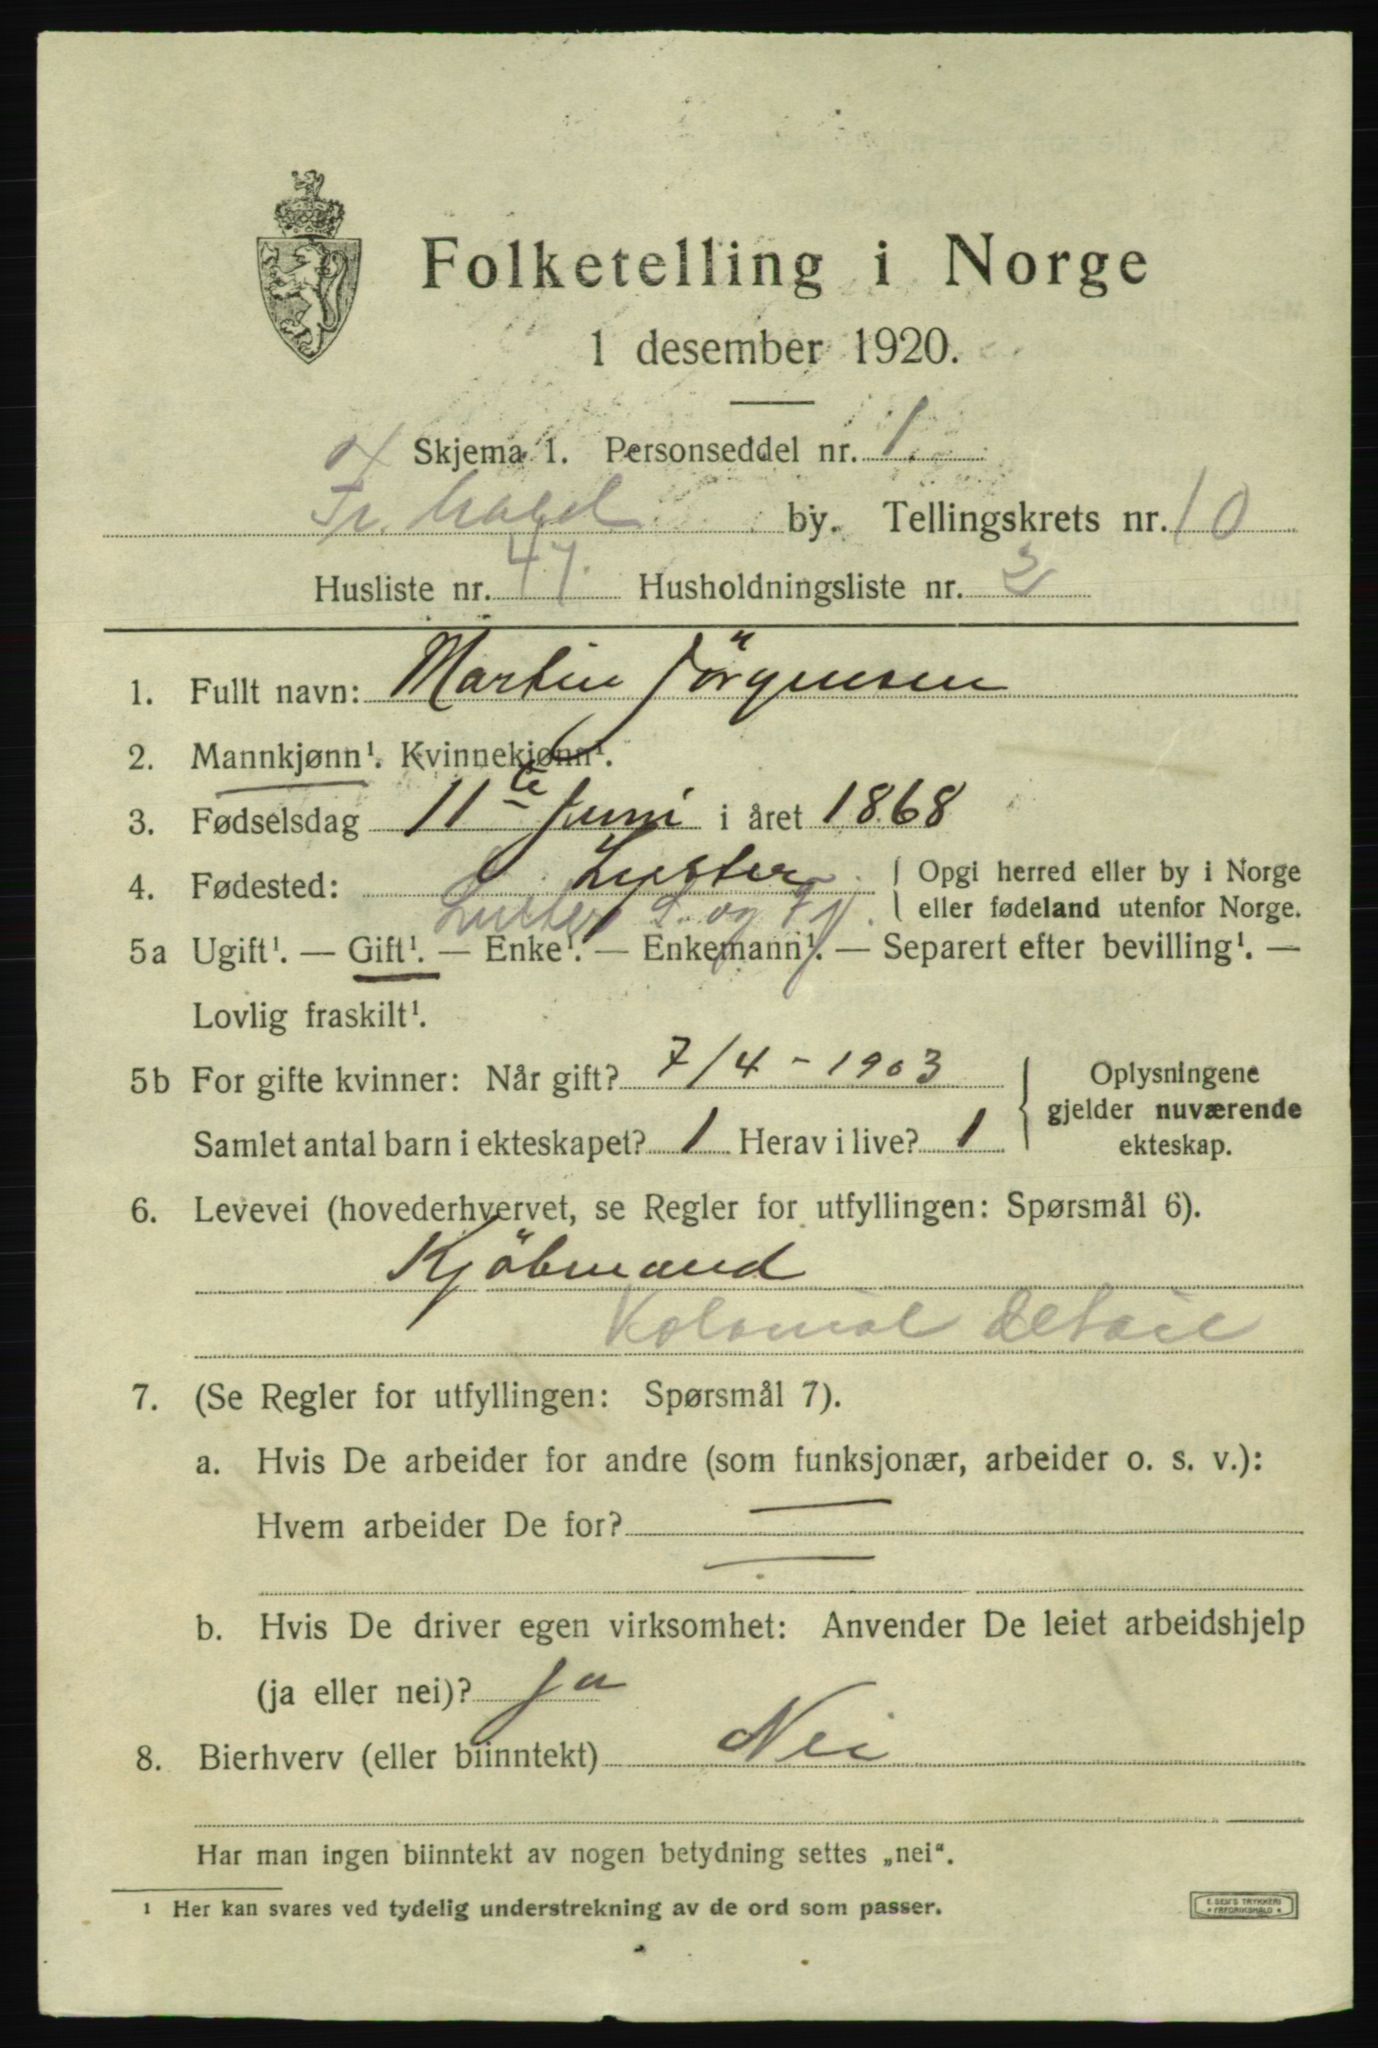 Folketelling i Norge
1 desember 1920.
Skjema 1. Personseddel nr. 1.
Fr.hald by. Tellingskrets nr. 10
Husliste nr. 47. Husholdningsliste nr. 3
1. Fullt navn: Martin Jörgensen
2. Mannkjønn¹. Kvinnekjønn¹.
3. Fødselsdag 11te Juni i året 1868
4. Fødested: Lyster { Opgi herred eller by i Norge
Luster S. og Fj. eller fødeland utenfor Norge.
5a Ugift¹. — Gift¹. — Enke¹. — Enkemann¹. — Separert efter bevilling¹. —
Lovlig fraskilt¹.
5b For gifte kvinner: Når gift? 7/4 - 1903 { Oplysningene
gjelder nuværende
Samlet antal barn i ekteskapet? 1 Herav i live? 1 ekteskap.
6. Levevei (hovederhvervet, se Regler for utfyllingen: Spørsmål 6).
Kjöbmand
Kolonial detail
7. (Se Regler for utfyllingen: Spørsmål 7).
a. Hvis De arbeider for andre (som funksjonær, arbeider o. s. v.):
Hvem arbeider De for? —
—
b. Hvis De driver egen virksomhet: Anvender De leiet arbeidshjelp
(ja eller nei)? ja
8. Bierhverv (eller biinntekt) Nei
Har man ingen biinntekt av nogen betydning settes „nei“.
¹ Her kan svares ved tydelig understrekning av de ord som passer.
E. SEM'S TRYKKERI
* FREDRIKSHALD *